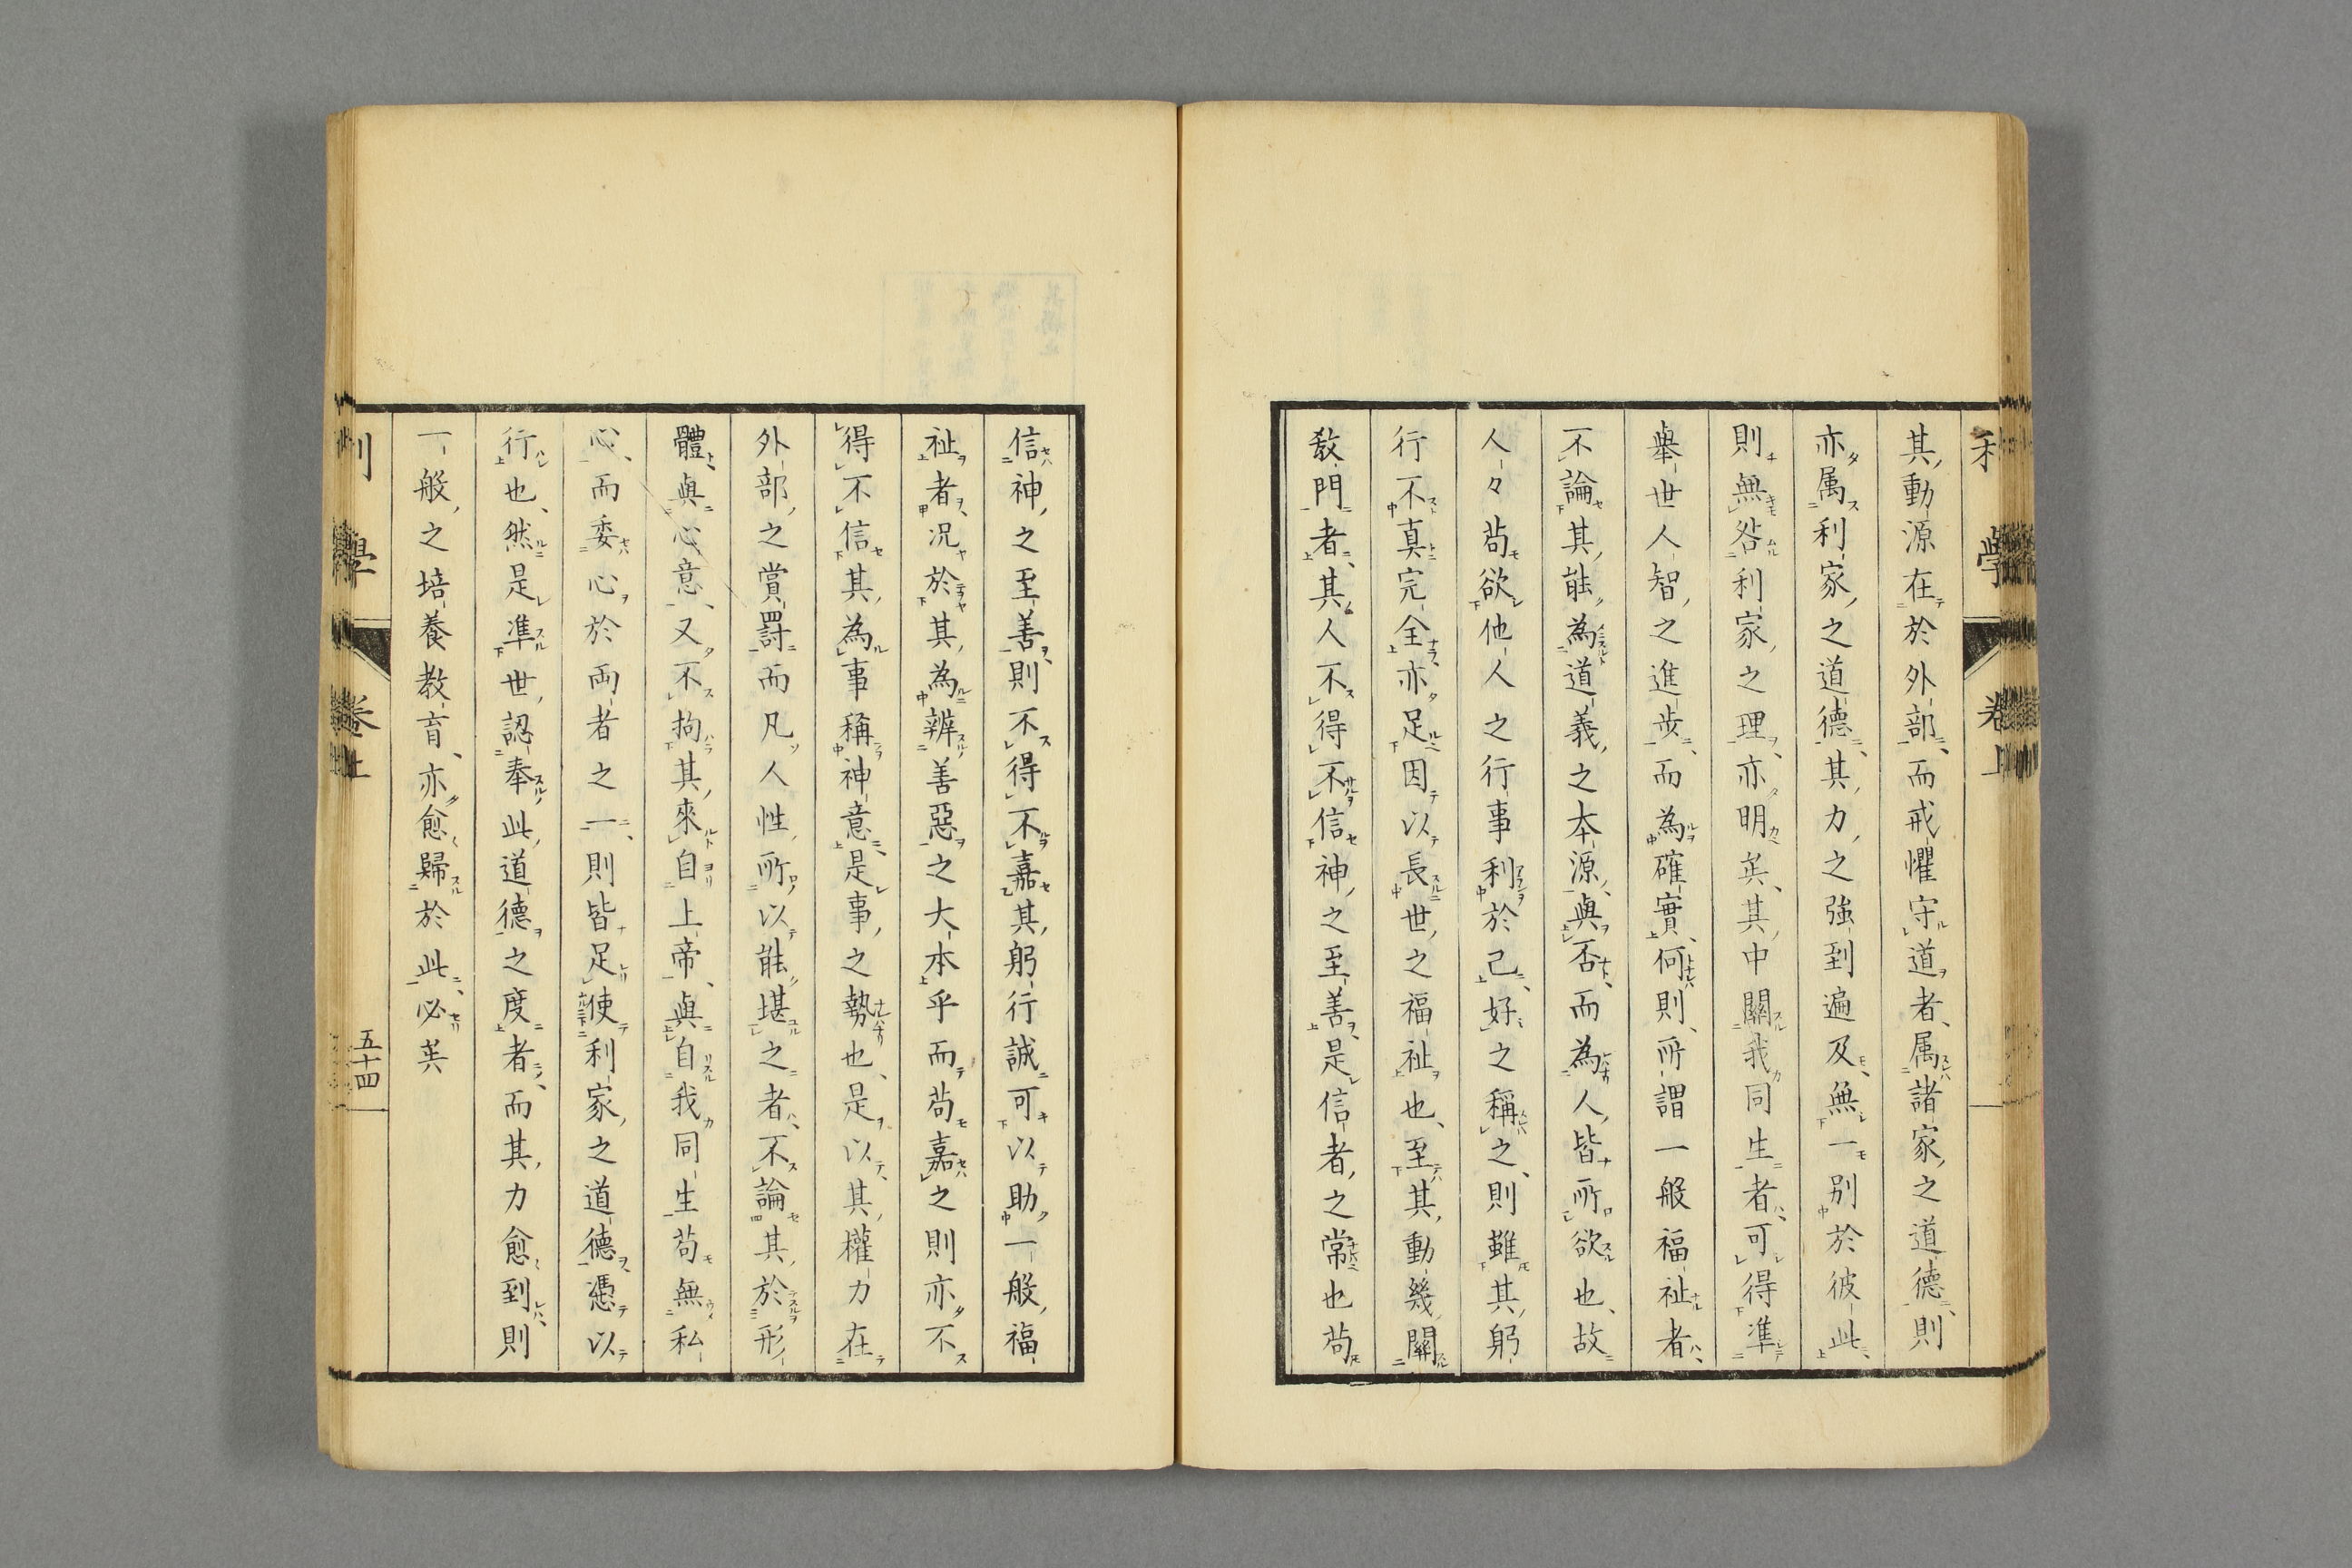 其動源在於外部而戒懼守道者属諸家之道德則
亦属利家之道德其力之強到遍及無一別於彼此
則無咎利家之理亦明矣其中關我同生者可得準
舉世人智之進歩而為確實何則所謂一般福祉者
不論其能為道義之本源與否而為人皆所欲也故
人々苟欲他人之行事利於己好之稱之則雖其躬
行不真完全亦足因以長世之福祉也至其動幾關
教門者其人不得不信神之至善是信者之常也苟
信神之至善則不得不嘉其躬行誠可以助一般福
祉者况於其為辨善惡之大本乎而苟嘉之則亦不
得不信其為事稱神意是事之勢也是以其權力在
外部之賞罰而凡人性所以能堪之者不論其於形
體與心意又不拘其來自上帝與自我同生苟無私
心而委心於両者之一則皆足使利家之道德憑以
行也然是準世認奉此道德之度者而其力愈到則
一般之培養教育亦愈歸於此必矣
利學 卷上
利學 卷上 五十四